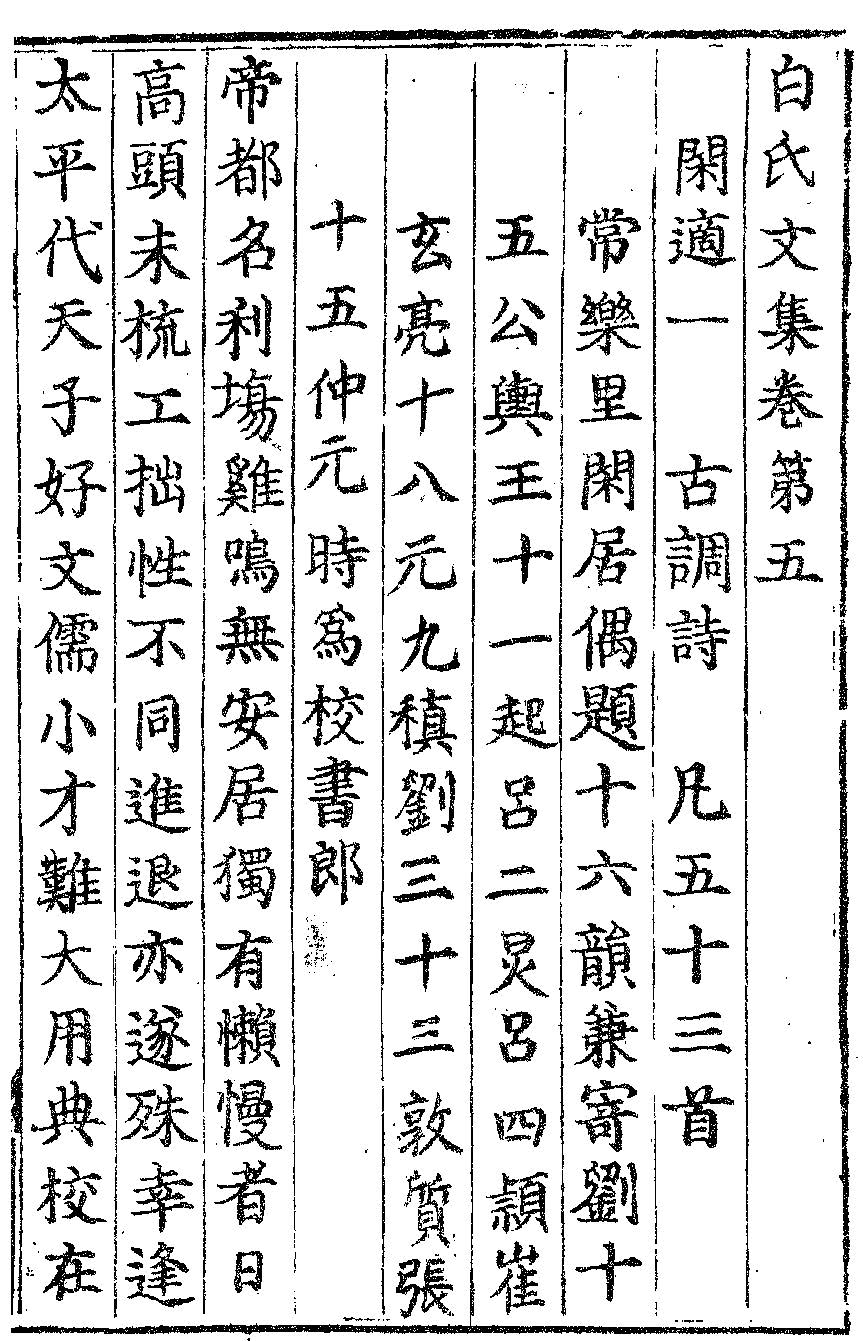 白氏文集卷第五
閑適一　古調詩　凡五十三首
常樂里閑居偶題十六韻兼寄劉十
五公輿王十一起呂二炅呂四熲崔
玄亮十八元九稹劉三十三敦質張
十五仲元時爲校書郎
帝都名利塲雞鳴無安居獨有懶慢者日
高頭未梳工拙性不同進退亦遂殊幸逢
太平代天子好文儒小才難大用典校在